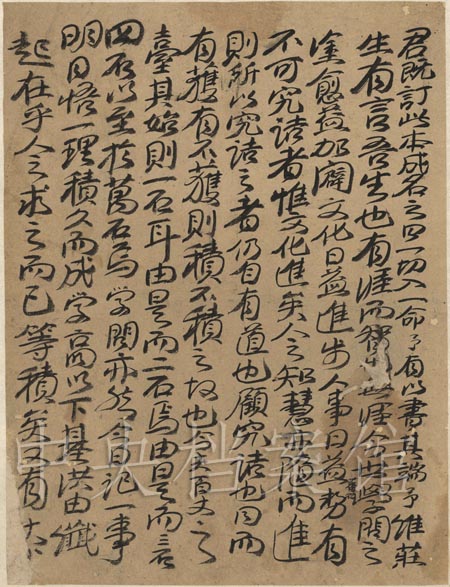 君既訂此本成名之曰一切入一命予有以書其端予維莊
生有言吾生也有涯而智也無涯今世學問之
塗愈益加闢文化日益進步人事日益勢有
不可究詰者惟文化進矣人之知慧亦隨而進
則所以究詰之者仍自有道也顧究詰也同而
有獲有不獲則積不積之故也今夫百丈之
臺其始則一石耳由是而二石焉由是而三石
四石以至於萬石焉學問亦然今日記一事
明日悟一理積久而成學高以下基洪由纖
起在乎人之求之而已等積矣又有大小
中央档案馆